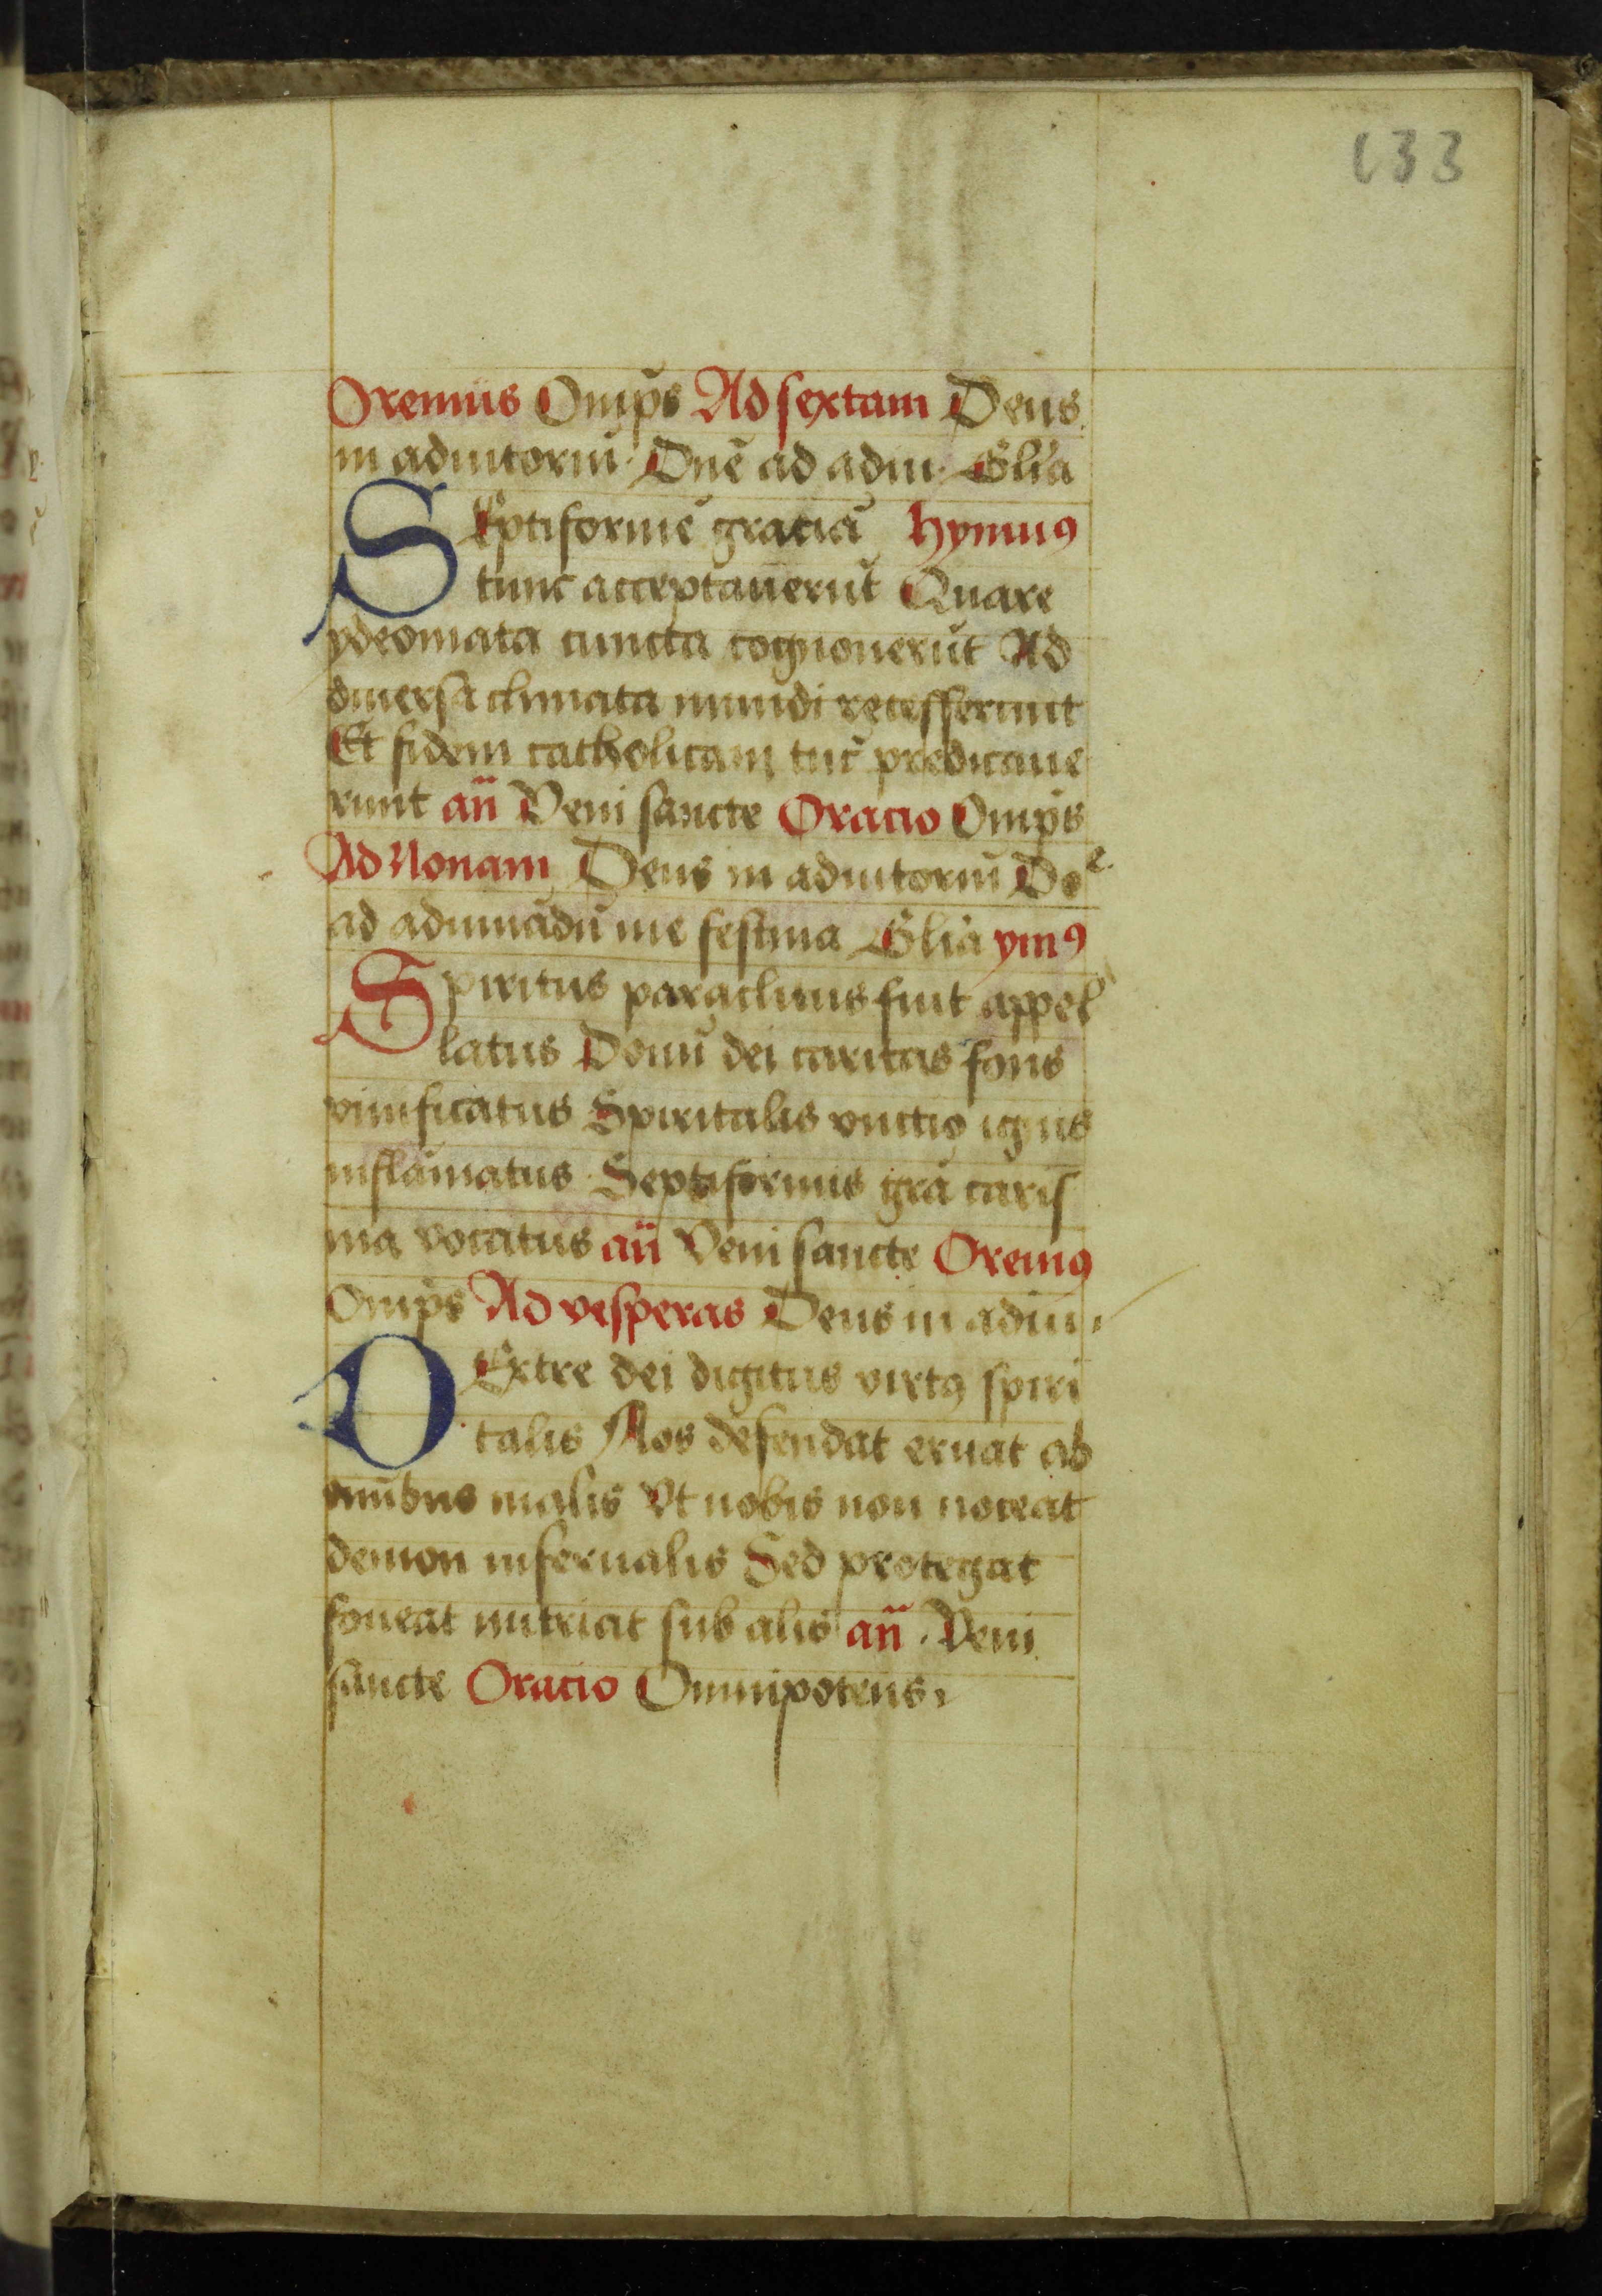 133
Oremus Omp̄s Ad sextam Deus
in adiutoriū· Dn̄e ad adiu· Gl̄ia
SEptiformē gratiā hymnꝰ
tunc acceptauerūt Quare
ydeomata cuncta cognouerūt Ad
diuersa climata mundi recesserunt
Et fidem catholicam tūc predicaue
runt an̄ Veni sancte Oracio Omp̄s
Ad Nonam Deus in adiutoriū Doᵉ
ad adiuuādū me festina Gl̄ia ymꝰ
Spiritus paraclitus fuit appel
latus Donū dei caritas fons
viuificatus Spiritalis vnctio ignis
inflāmatus Septiformis gr̄a caris
ma vocatus an̄ Veni sancte Oremꝰ
Omp̄s Ad vesperas Deus in adiu·
DExtre dei digitus virtꝰ spiri
talis Nos defendat eruat ab
om̄ibus malis Vt nobis non noceat
demon infernalis Sed protegat
foueat nutriat sub alis an̄ · Veni
sancte Oracio Omnipotens·